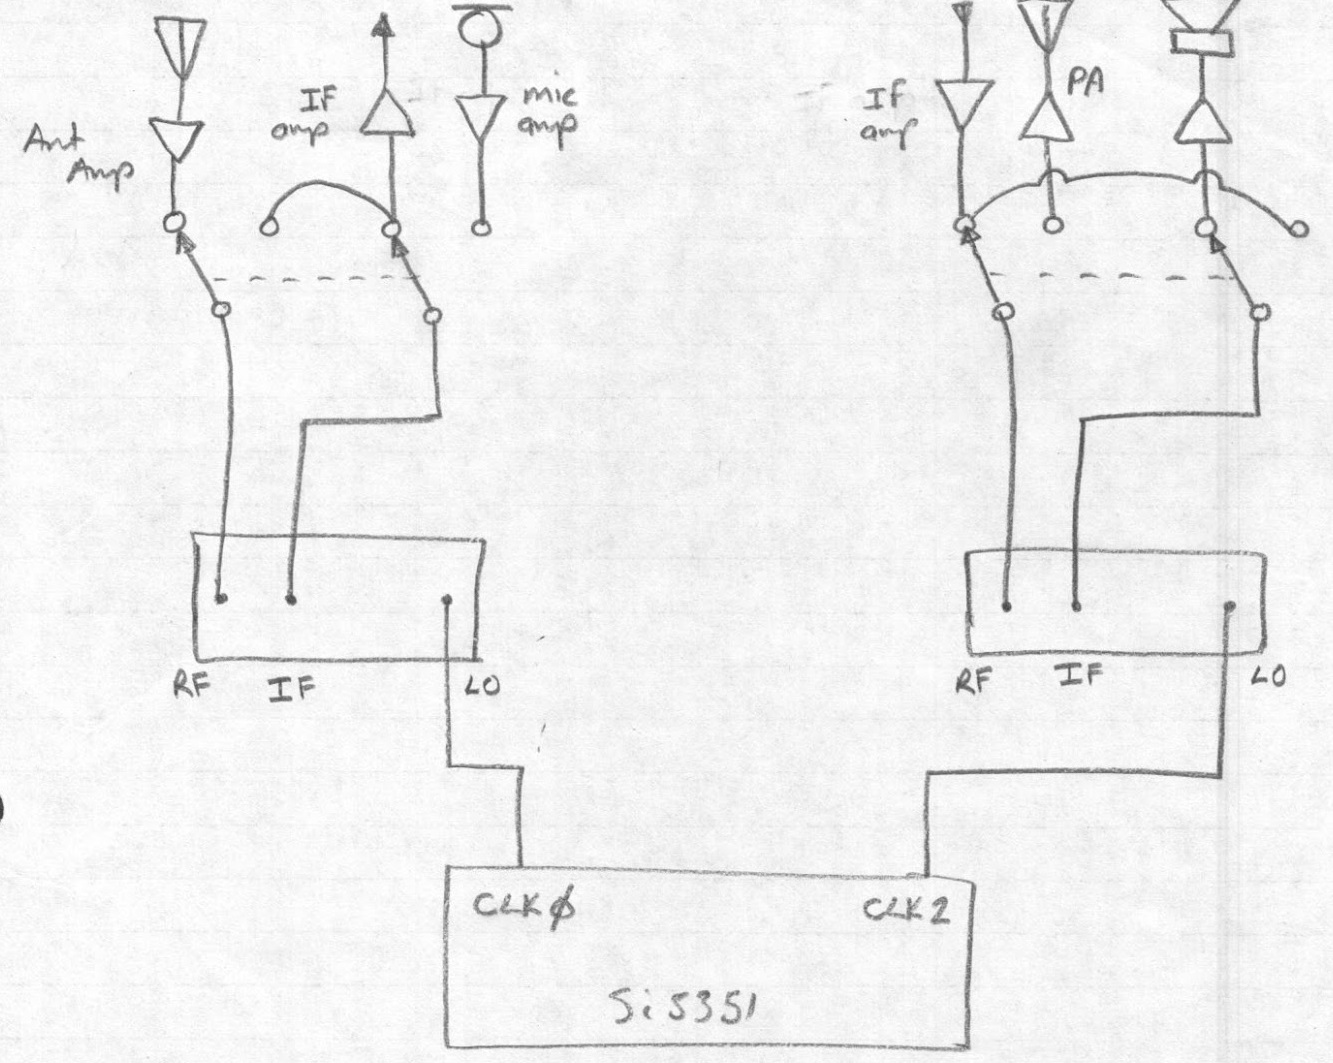 IF
amp
mic
amp
Ant
Amp
If
amp
PA
RF
IF
LO
RF
IF
LO
CLKϕ
CLK2
Si5351